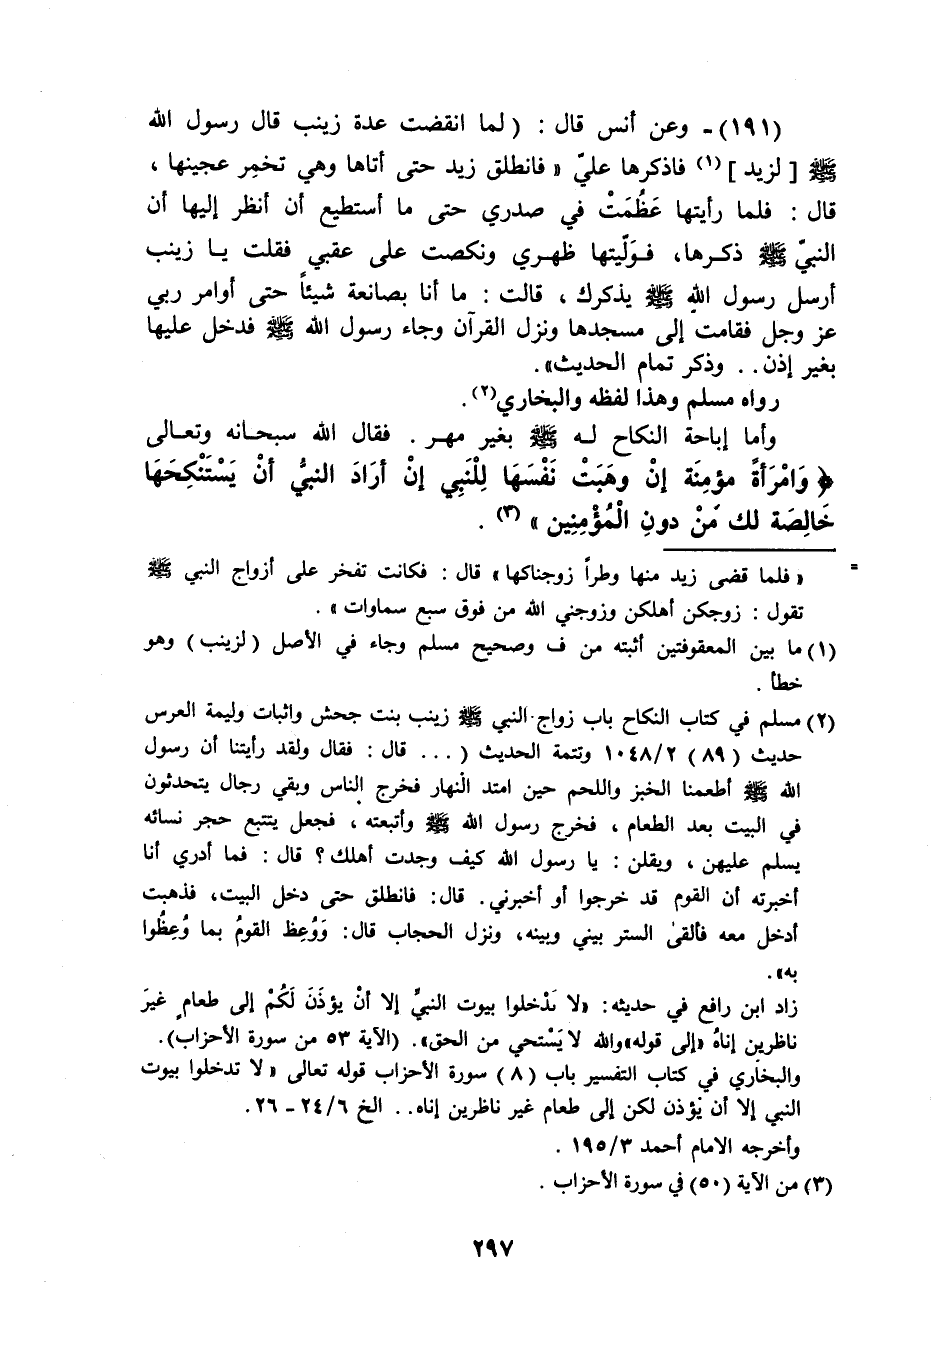 (١٩١)- وعن أنس قال : ( لما انقضت عدة زينب قال رسول الله
ﷺ [ لزيد ] (١) فاذكرها عليّ « فانطلق زيد حتى أتاها وهي تخمِر عجينها ،
قال : فلما رأيتها عَظُمَتْ في صدري حتى ما أستطيع أن أنظر إليها أن
النبيّ ﷺ ذكرها، فوَلّيتها ظهري ونكصت على عقبي فقلت يا زينب
أرسل رسول الله ﷺ يذكرك ، قالت : ما أنا بصانعة شيئاً حتى أوامر ربي
عز وجل فقامت إلى مسجدها ونزل القرآن وجاء رسول الله ﷺ فدخل عليها
بغير إذن . . وذكر تمام الحديث».
رواه مسلم وهذا لفظه والبخاري(٢).
وأما إباحة النكاح له ﷺ بغير مهر . فقال الله سبحانه وتعالى
﴿ وَامْرَأةً مؤمِنَة إنْ وهَبَتْ نَفْسَهَا لِلْنَبِي إنْ أرَادَ النبيُّ أنْ يَسْتَنْكِحَهَا
خَالِصَة لك مَنْ دونِ الْمُؤْمِنِين » (٣) .
= « فلما قضى زيد منها وطراً زوجناكها » قال : فكانت تفخر على أزواج النبي ﷺ
تقول : زوجكن أهلكن وزوجني الله من فوق سبع سماوات » .
(١) ما بين المعقوفتين أثبته من ف وصحيح مسلم وجاء في الأصل ( لزينب ) وهو
خطأ .
(٢) مسلم في كتاب النكاح باب زواج النبي ﷺ زينب بنت جحش واثبات وليمة العرس
حديث ( ٨٩ ) ١٠٤٨/٢ وتتمة الحديث ( . . . قال : فقال ولقد رأيتنا أن رسول
الله ﷺ أطعمنا الخبز واللحم حين امتد النهار فخرج الناس وبقي رجال يتحدثون
في البيت بعد الطعام ، فخرج رسول الله ﷺ وأتبعته ، فجعل يتتبع حجر نسائه
يسلم عليهن ، ويقلن : يا رسول الله كيف وجدت أهلك ؟ قال : فما أدري أنا
أخبرته أن القوم قد خرجوا أو أخبرني. قال: فانطلق حتى دخل البيت، فذهبت
أدخل معه فألقىٰ الستر بيني وبينه، ونزل الحجاب قال: وَوُعِظ القومُ بما وُعِظُوا
به».
زاد ابن رافع في حديثه: «لا تَدْخلوا بيوت النبيِّ إلا أنْ يؤذَنَ لَكُمْ إلى طعامٍ غيرَ
ناظرين إناهُ «إلى قوله»والله لا يَسْتحي من الحق». (الآية ٥٣ من سورة الأحزاب).
والبخاري في كتاب التفسير باب ( ٨ ) سورة الأحزاب قوله تعالى « لا تدخلوا بيوت
النبي إلا أن يُؤذن لكن إلى طعام غير ناظرين إناه. . الخ ٢٤/٦ - ٢٦.
وأخرجه الامام أحمد ١٩٥/٣ .
(٣) من الآية (٥٠) في سورة الأحزاب .
٢٩٧